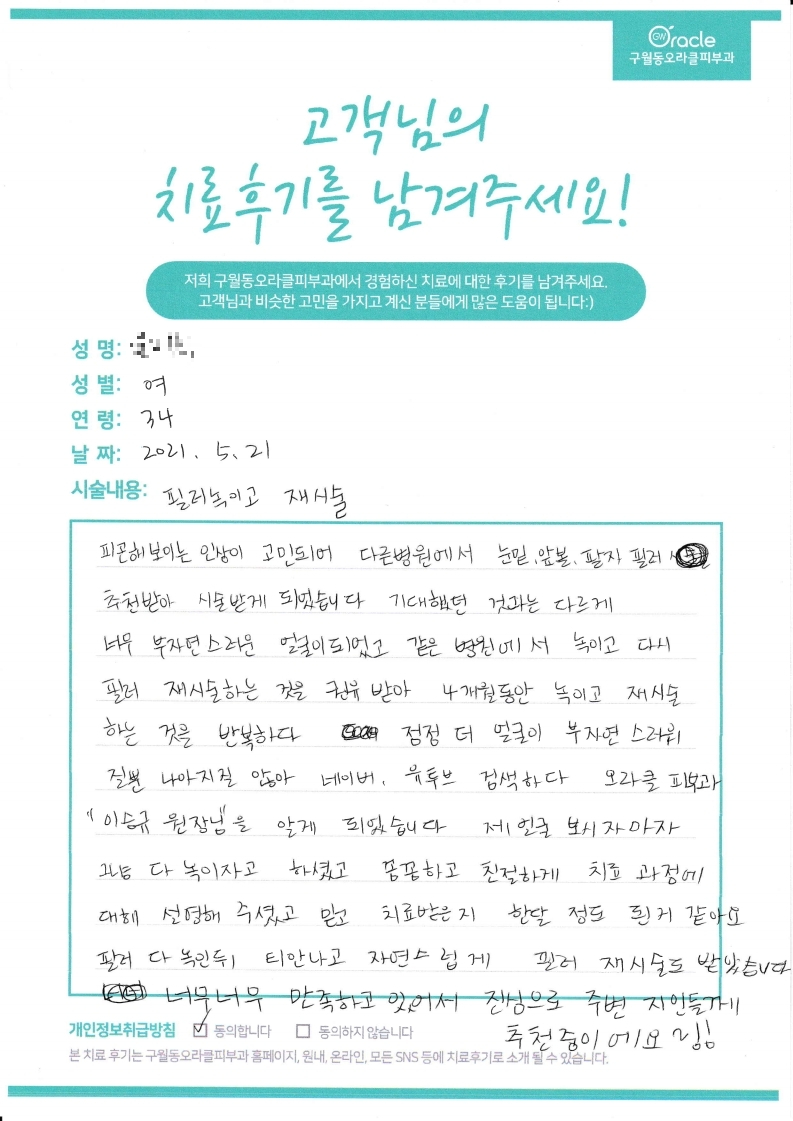 Oracle
구월동오라클피부과
고객님의
치료후기를 남겨주세요!
저희 구월동오라클피부과에서 경험하신 치료에 대한 후기를 남겨주세요.
고객님과 비슷한 고민을 가지고 계신 분들에게 많은 도움이 됩니다:)
성 명:
성 별: 여
연 령: 34
날 짜: 2021. 5. 21
시술내용: 필러녹이고 재시술
피곤해보이는 인상이 고민되어 다른병원에서 눈밑, 앞볼, 팔자 필러
추천받아 시술받게 되었습니다 기대했던 것과는 다르게
너무 부자연스러운 얼굴이되었고 같은 병원에서 녹이고 다시
필러 재시술하는 것을 권유받아 4개월동안 녹이고 재시술
하는 것을 반복하다 점점 더 얼굴이 부자연스러워
질뿐 나아지질 않아 네이버, 유투브 검색하다 오라클 피부과
"이승규 원장님"을 알게 되었습니다 제얼굴 보시자마자
그냥 다 녹이자고 하셨고 꼼꼼하고 친절하게 치료 과정에
대해 설명해 주셨고 믿고 치료받은지 한달 정도 된거 같아요
필러 다 녹인뒤 티안나고 자연스럽게 필러 재시술도 받았습니다
너무너무 만족하고 있어서 진심으로 주변 지인들께
추천중이에요
개인정보취급방침 ☑ 동의합니다 ☐ 동의하지 않습니다
본 치료 후기는 구월동오라클피부과 홈페이지, 원내, 온라인, 모든 SNS 등에 치료후기로 소개 될 수 있습니다.